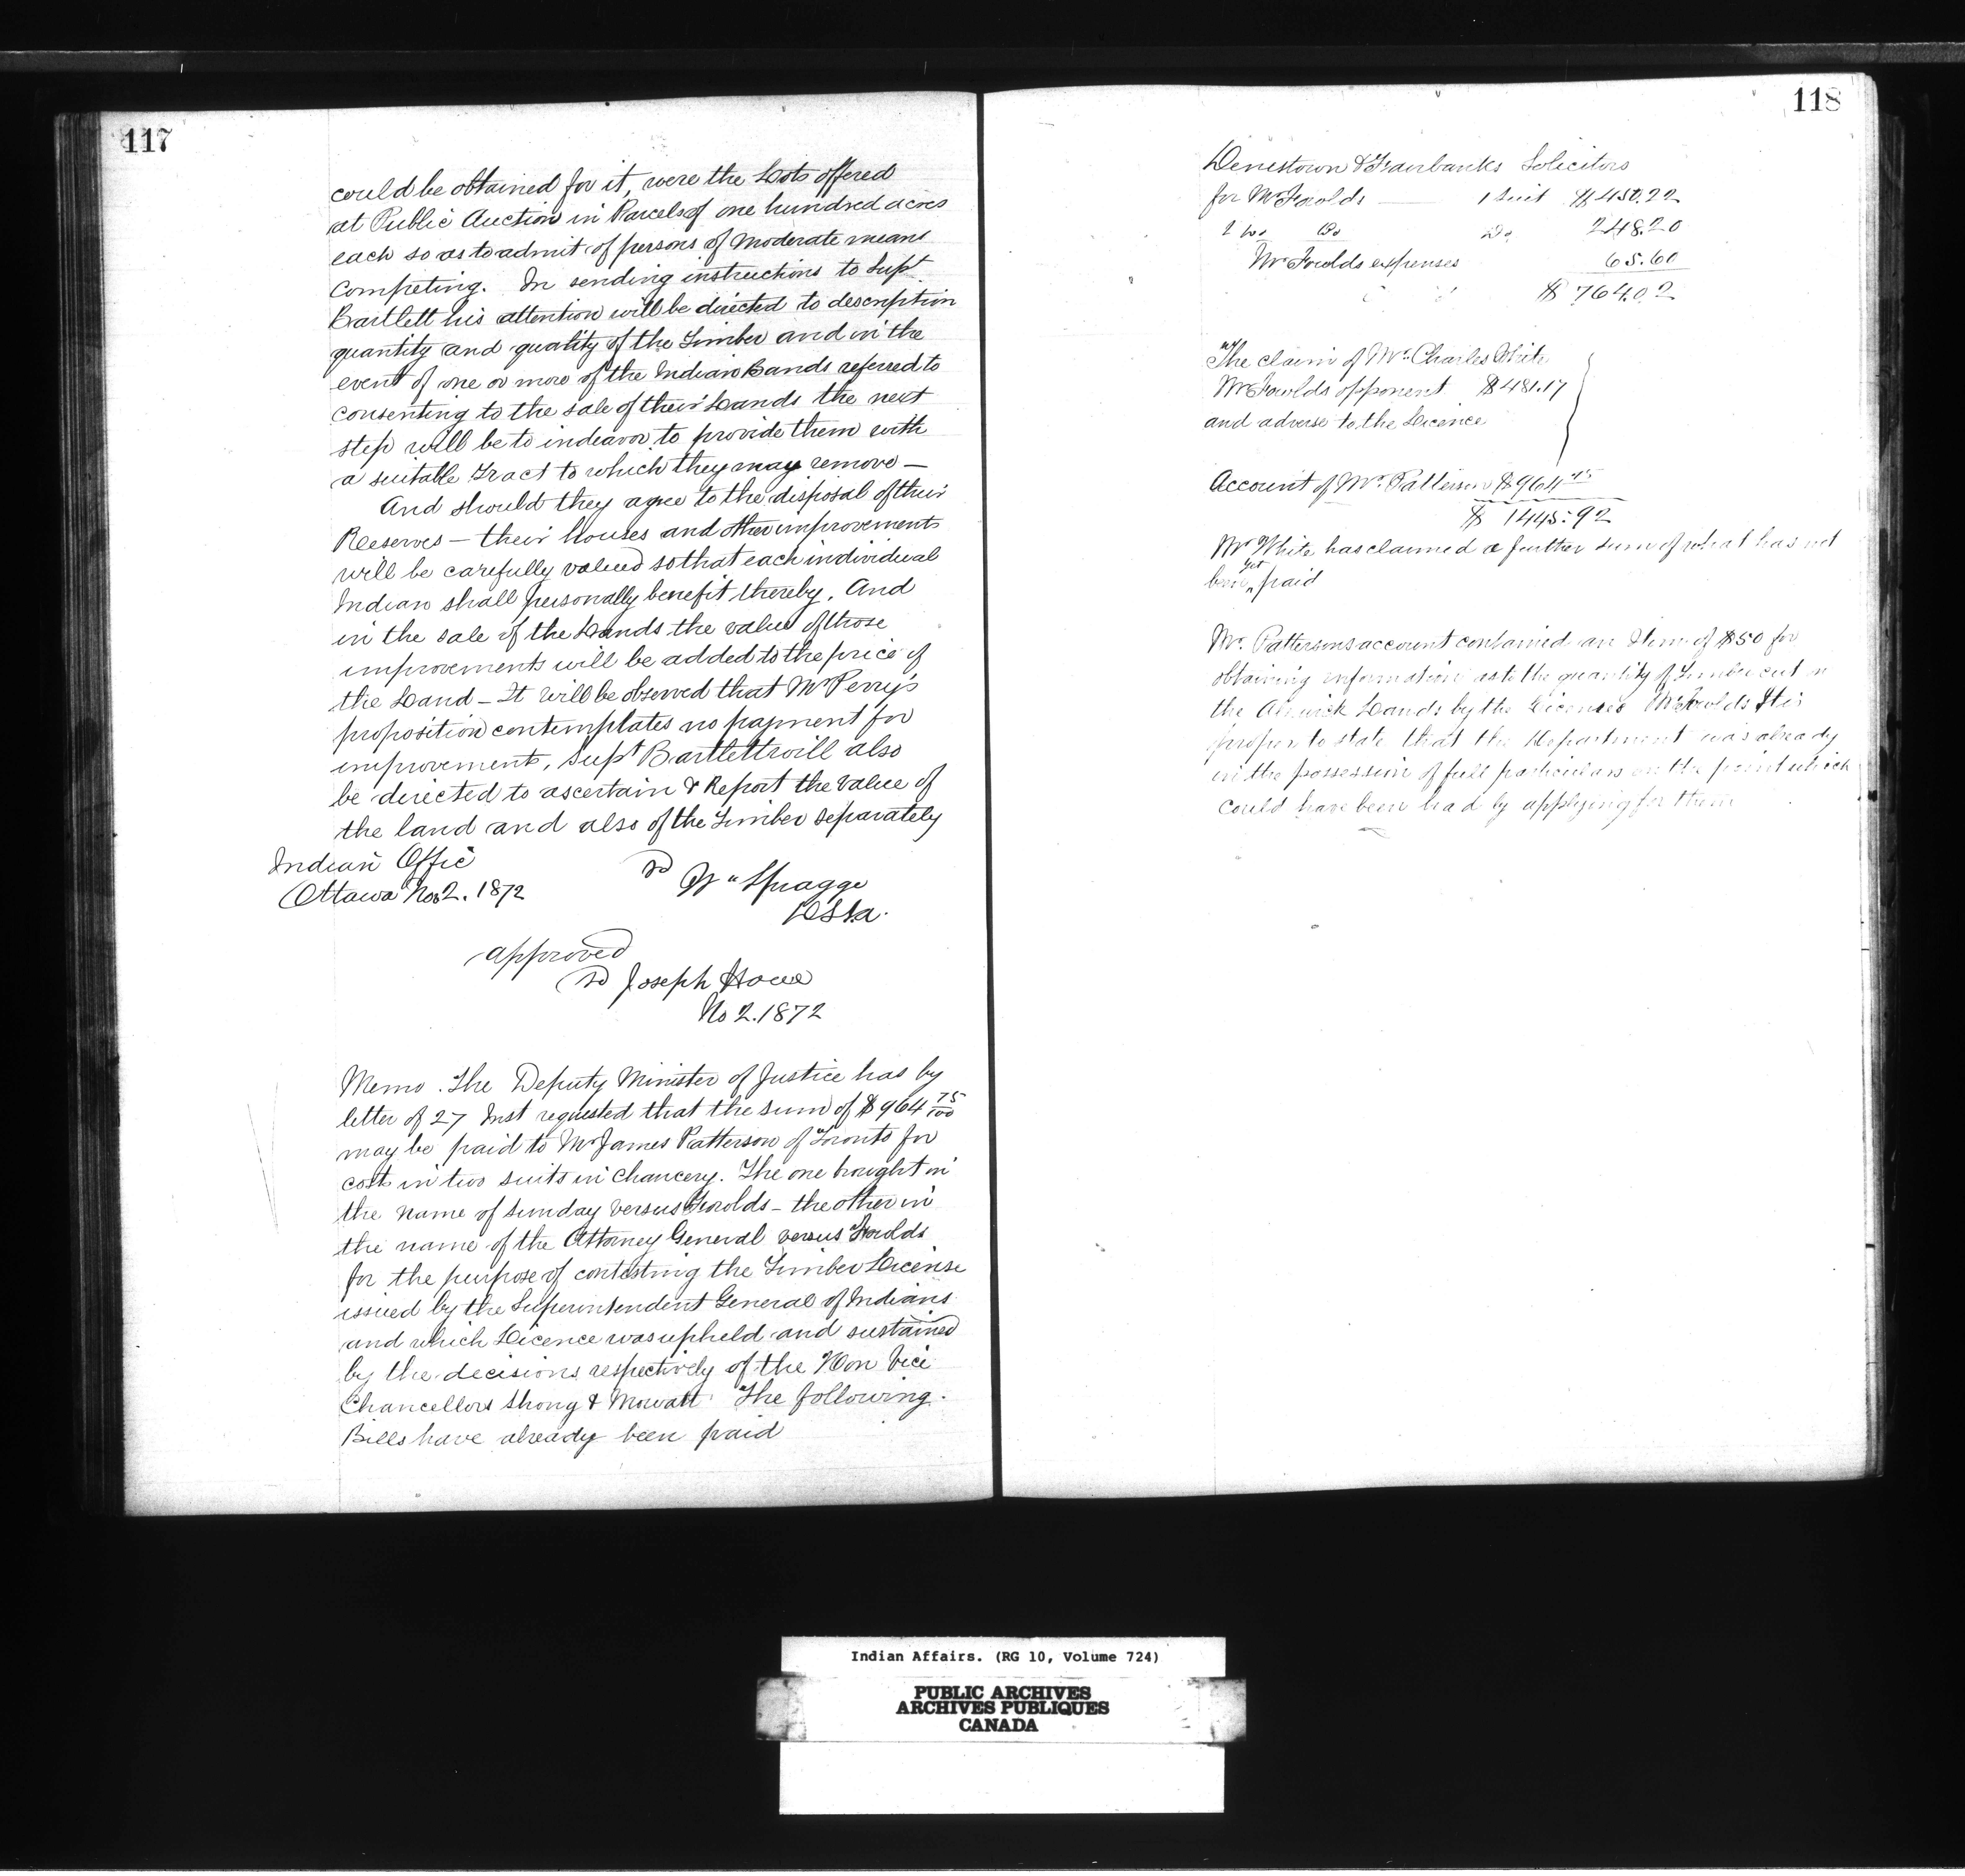 117
could be obtained for it, were the Lots offered
at Public Auction in Parcels of one hundred acres
each so as to admit of persons of moderate means
competing. In sending instructions to Supt
Bartlett his attention will be directed to description
quantity and quality of the Timber and in the
event of one or more of the Indian Bands referred to
consenting to the sale of their Lands the next
step will be to indeavor to provide them with
a suitable Tract to which they may remove —
And should they agree to the disposal of their
Reserves — their houses and other improvements
will be carefully valued so that each individual
Indian shall personally benefit thereby. And
in the sale of the Lands the value of those
improvements will be added to the price of
the Land — It will be observed that Mr Perry's
proposition contemplates no payment for
improvements, Supt Bartlett will also
be directed to ascertain & Report the value of
the land and also of the Timber separately
Indian Offic
Ottawa Nov 2. 1872
sd Wm Spragge
DSIa.
approved
sd Joseph Howe
No 2. 1872
Memo. The Deputy Minister of Justice has by
letter of 27 Inst requested that the sum of $964 75/100
may be paid to Mr James Patterson of Toronto for
cost in two suits in Chancery. The one brought in
the name of Sunday versus Fowlds — the other in
the name of the Attorney General versus Fowlds
for the purpose of contesting the Timber License
issued by the Superintendent General of Indians
and which Licence was upheld and sustained
by the decisions respectively of the Hon Vice
Chancellors Strong & Mowatt The following
Bills have already been paid
118
Denistown & Fairbanks Solicitors
for Mr Fowlds — 1 Suit $450.22
Do Do 248.20
Mr Fowlds expenses 65.60
$764.02
The claim of Mr. Charles White
Mr Fowlds opponent $481.17
and adverse to the Licence
Account of Mr. Patterson $964 75
$1445.92
Mr White has claimed a further sum of what has not
been yet paid
Mr. Pattersons account contained an Item of $50 for
obtaining information as to the quantity of Timber cut in
the Alnwick Lands by the Licensee Mr Fowlds It is
proper to state that the Department was already
in the possession of full particulars on the point which
could have been had by applying for them
Indian Affairs. (RG 10, Volume 724)
PUBLIC ARCHIVES
ARCHIVES PUBLIQUES
CANADA